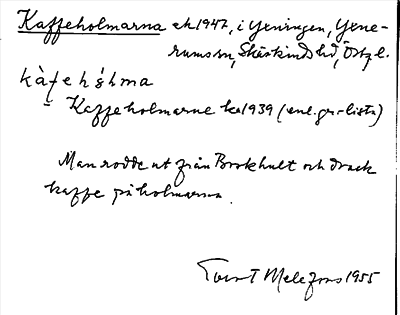 Kaffeholmarna ek 1947, i Yxningen, Yxne-
rums sn, Skärkinds hd, Östgl.
kàfehɷ̀hma
= Kaffeholmarne ka 1939 (enl. gr-lista)
Man rodde ut från Brokhult och drack
kaffe på holmarna.
1955